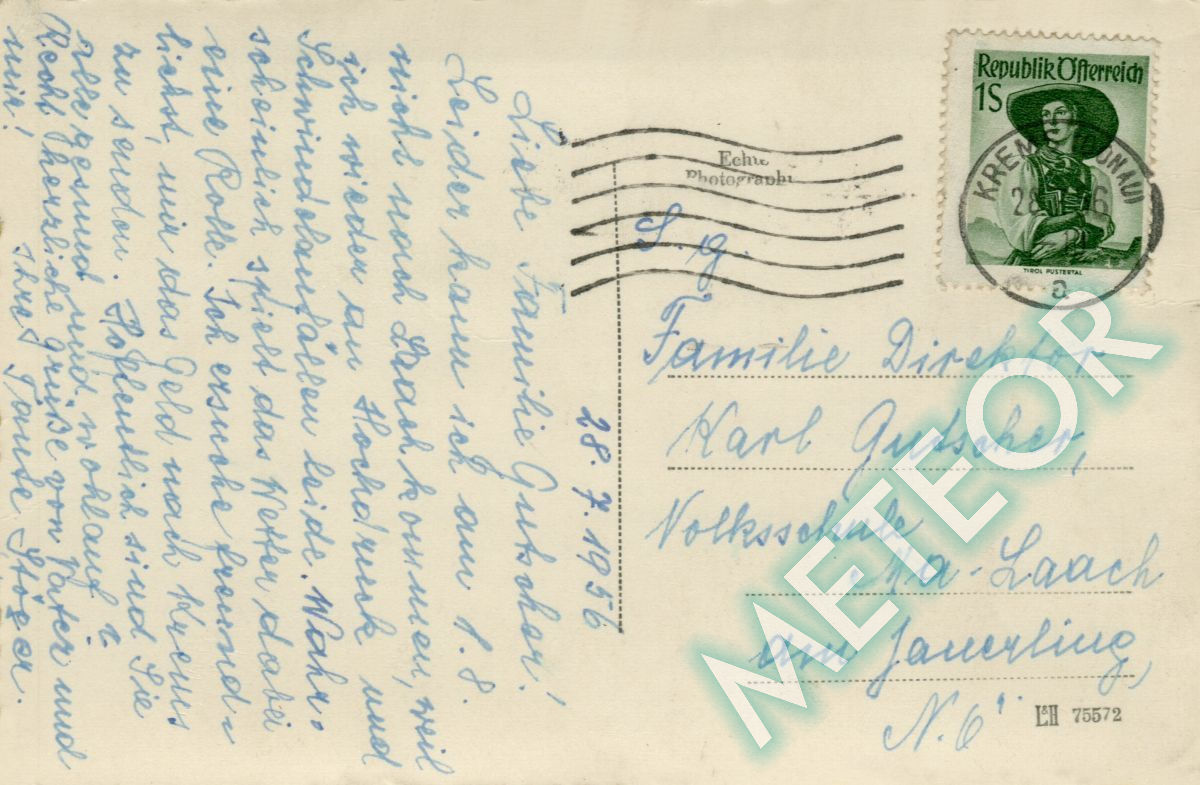 28. 7. 1956
Liebe Familie Gutscher!
Leider kann ich am 1. 8.
nicht nach Laach kommen, weil
ich wieder an Hochdruck und
Schwindelanfällen leide. Wahr-
scheinlich spielt das Wetter dabei
eine Rolle. Ich ersuche freund-
lichst, mir das Geld nach Krems
zu senden. Hoffentlich sind Sie
alle gesund und wohlauf?
Recht herzliche Grüße von Vater und
mir! Ihre Tante Stöger.
Republik Österreich
1S
TIROL PUSTERTAL
KREMS (DONAU)
28
6
a
Echte
Photographie
S. g.
Familie Direktor
Karl Gutscher,
Volksschule
Ma. Laach
am Jauerling,
N. Ö.
L&H 75572
METEOR